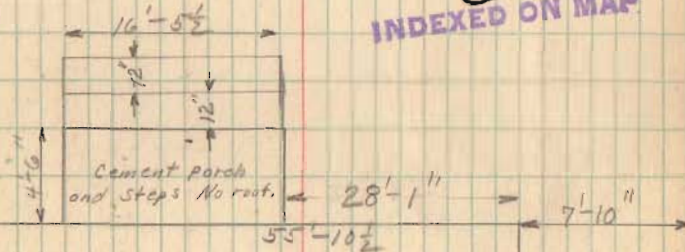 INDEXED ON MAP
16'-5½
12"
12"
4'-6"
Cement porch
and steps No roof.
28'-1"
7'-10"
55'-10½